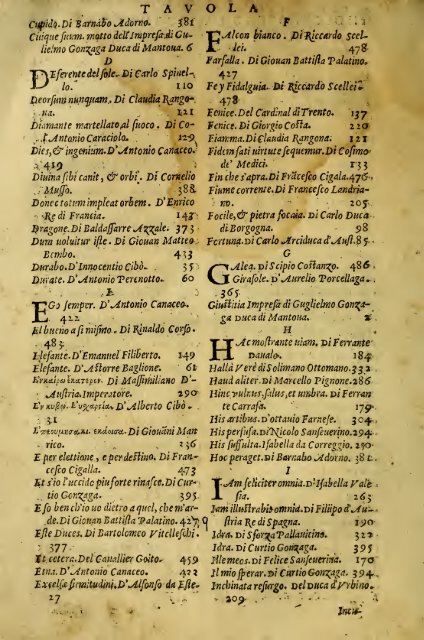 TAVOLA
Cupido. Di Barnabo Adorno. 381
Cuique suum. motto dell'Impresa di Gu-
lielmo Gonzaga Duca di Mantoua. 6
D
DEserente del sole. Di Carlo Spinel-
lo. 110
Deorsum nunquam. Di Claudia Rango-
na. 121
Diamante martellato al fuoco. Di Co-
l'Antonio Caraciolo. 129
Dies, & ingenium. D'Antonio Canaceo.
419
Diuina sibi canit, & orbi. Di Cornelio
Musso. 388
Donec totum impleat orbem. D'Enrico
Re di Francia. 143
Dragone. Di Baldassarre Azzale. 373
Dum uoluitur iste. Di Giouan Matteo
Bembo. 433
Durabo. D'Innocentio Cibò. 35
Durate. D'Antonio Perenotto. 60
E
EGo semper. D'Antonio Canaceo.
422
El bueno a si mismo. Di Rinaldo Corso.
483
Elefante. D'Emanuel Filiberto. 149
Elefante. D'Astorre Baglione. 61
Di Massimiliano D'-
Austria Imperatore. 290
D'Alberto Cibò.
31
Di Giouāni Man
rico. 236
E per elettione, e per destino. Di Fran-
cesco Cigalla. 473
Et s'io l'uccido piu forte rinasce. Di Cur-
tio Gonzaga. 395
E so ben ch'io uo dietro a quel, che m'ar-
de. Di Giouan Battista Palatino. 427
Este Duces. Di Bartolomeo Vitellesshi
377
Et cetera. Del Caualier Goito. 459
Etna. D'Antonio Canaceo. 422
Excelsæ firmitudini. D'Alfonso da Este-
27
F
FAlcon bianco. Di Riccardo Scel-
lei. 478
Farfalla. Di Giouan Battista Palatino.
427
Fe y Fidalguia. Di Riccardo Scellei
478
Fenice. Del Cardinal di Trento. 137
Fenice. Di Giorgio Costa. 220
Fiamma. Di Claudia Rangona. 121
Fidem fati uirtute sequemur. Di Cosimo
de' Medici. 133
Fin che s'apra. Di Frācesco Cigala. 476
Fiume corrente. Di Francesco Landria-
no. 205
Focile, & pietra focaia. Di Carlo Duca
di Borgogna. 98
Fortuna. Di Carlo Arciduca d'Aust. 85
G
GAlea. Di Scipio Costanzo. 486
Girasole. D'Aurelio Porcellaga.
365
Giustitia Impresa di Guglielmo Gonza-
ga Duca di Mantoua. 2
H
HAc mostrante uiam. Di Ferrante
Daualo. 184
Hallà Verè di Solimano Ottomano. 332
Haud aliter. Di Marcello Pignone. 286
Hinc uulnus, salus, et umbra. Di Ferran
te Carrafa. 179
His artibus. D'ottauio Farnese. 304
His persusa. Di Nicolo Sanseuerino. 294
His suffulta. Isabella da Correggio. 290
Hoc peraget. Di Barnabo Adorno. 381
I
IAm feliciter omnia. D'Isabella Vale
sia. 263
Iam illustrabit omnia. Di Filippo d'Au-
stria Re di Spagna. 190
Idra. Di Sforza Pallauicino. 322
Idra. Di Curtio Gonzaga. 395
Ille meos. Di Felice Sanseuerina. 170
Il mio sperar. Di Curtio Gonzaga. 394
Inchinata resurgo. Del Duca d'Vrbino.
209
Incul